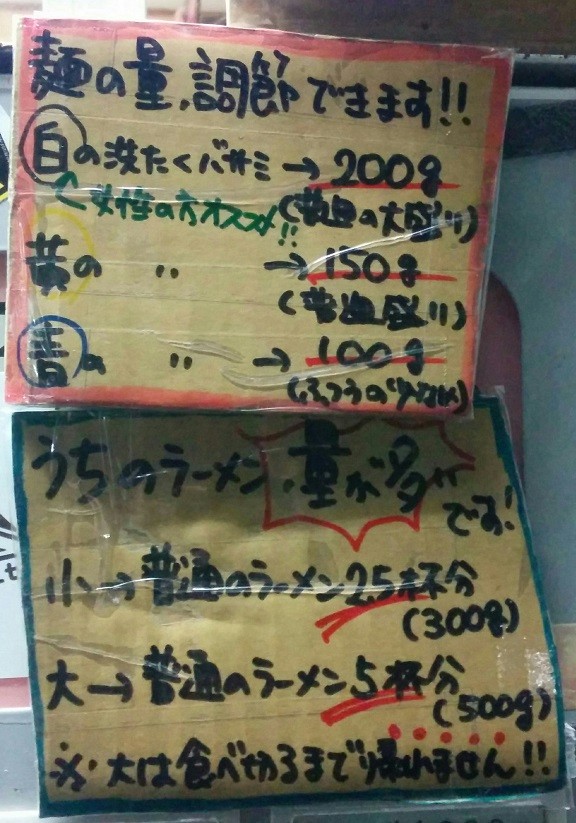 麺の量、調節できます!!
白の洗たくバサミ→200g
↑女性の方オススメ!!
(普通の大盛り)
黄の 〃 →150g
(普通盛り)
青の 〃 →100g
(ふつうの少なめ)
うちのラーメン、量が多いです!
小→普通のラーメン2.5杯分
(300g)
大→普通のラーメン5杯分
(500g)
※大は食べ切るまで帰れません!!